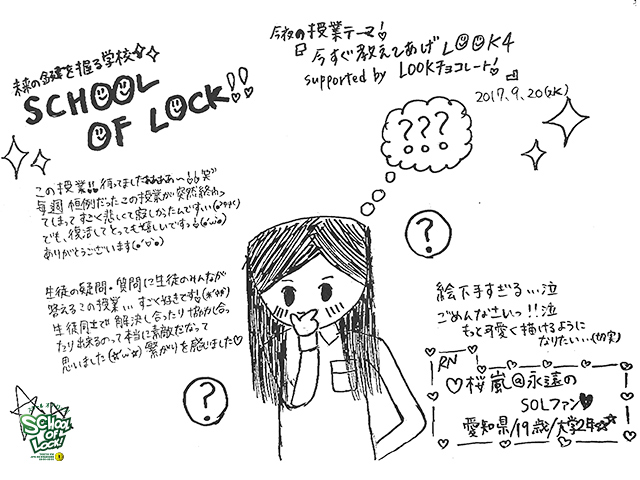 未来の鍵を握る学校☆✧
SCHOOL
OF LOCK!!
今夜の授業テーマ!
『今すぐ教えてあげLOOK4
supported by LOOKチョコレート!』
2017.9.20(水)
???
...
この授業!!待ってましたぁぁぁぁ〜!!笑
毎週恒例だったこの授業が突然終わっ
てしまってすごく悲しくて寂しかったんですぃぃ
でも、復活してとっても嬉しいですっ!(*'ω'*)
ありがとうございます(*'▽'*)
生徒の疑問・質問に生徒のみんなが
答えるこの授業...すごく好きです!
生徒同士で解決し合ったり協力し合っ
たり出来るのって本当に素敵だなって
思いました(*'ω'*)繋がりを感じました♡
?
?
絵下手すぎる...泣
ごめんなさいっ!!泣
もっと可愛く描けるように
なりたい...(切実)
RN
♡桜嵐@永遠の
SOLファン♥
愛知県/19歳/大学2年☆☆
SCHOOL
OF
LOCK!